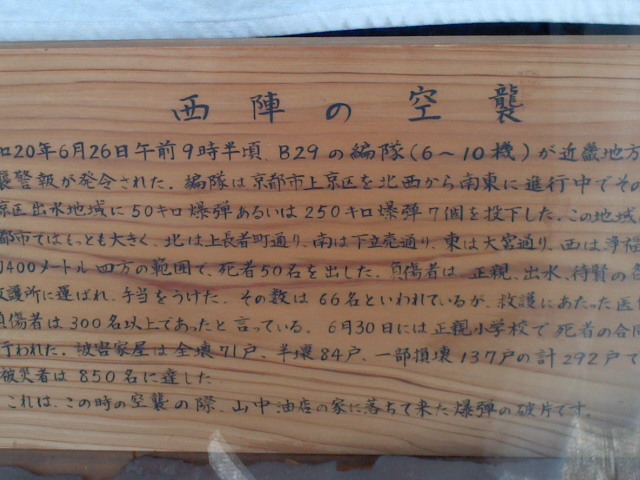 西陣の空襲
和20年6月26日午前9時半頃、B29の編隊(6〜10機)が近畿地方
襲警報が発令された。編隊は京都市上京区を北西から南東に進行中でその
京区出水地域に50キロ爆弾あるいは250キロ爆弾7個を投下した。この地域
都市ではもっとも大きく、北は上長者町通り、南は下立売通り、東は大宮通り、西は浄福
400メートル四方の範囲で、死者50名を出した。負傷者は、正親、出水、待賢の各
救護所に運ばれ、手当をうけた。その数は66名といわれているが、救護にあたった医
負傷者は300名以上であったと言っている。6月30日には正親小学校で死者の合同
行われた。被害家屋は全壊71戸、半壊84戸、一部損壊137戸の計292戸で
被災者は850名に達した
これは、この時の空襲の際、山中油店の家に落ちて来た爆弾の破片です。